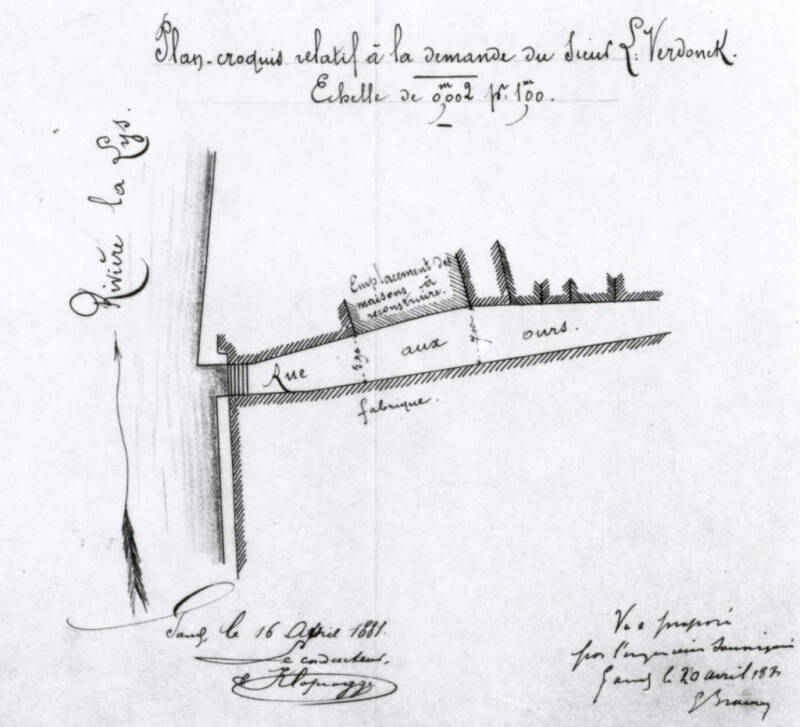 Plan-croquis relatif à la demande du Sieur L. Verdonck.
Echelle de 0,002 pr 1,00.
Rivière la Lys.
Emplacement des
maisons à
reconstruire.
Rue aux ours.
fabrique.
Gand, le 16 Avril 1881.
Le conducteur,
Vu et proposé
par l'ingénieur soussigné
Gand le 20 avril 1881